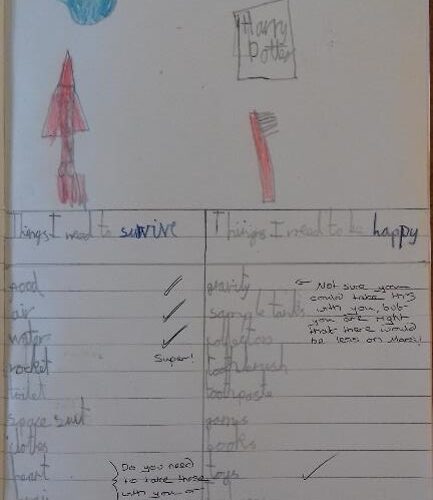 Harry
Potter
Things I need to survive
Things I need to be happy
food
air
water
Super!
rocket
toilet
space suit
clothes
heart
gravity
Not sure you
could take this
with you, but
you are right
that there would
be less on Mars!
sample tanks
collectors
toothbrush
toothpaste
books
toys
Do you need
to take these
with you or